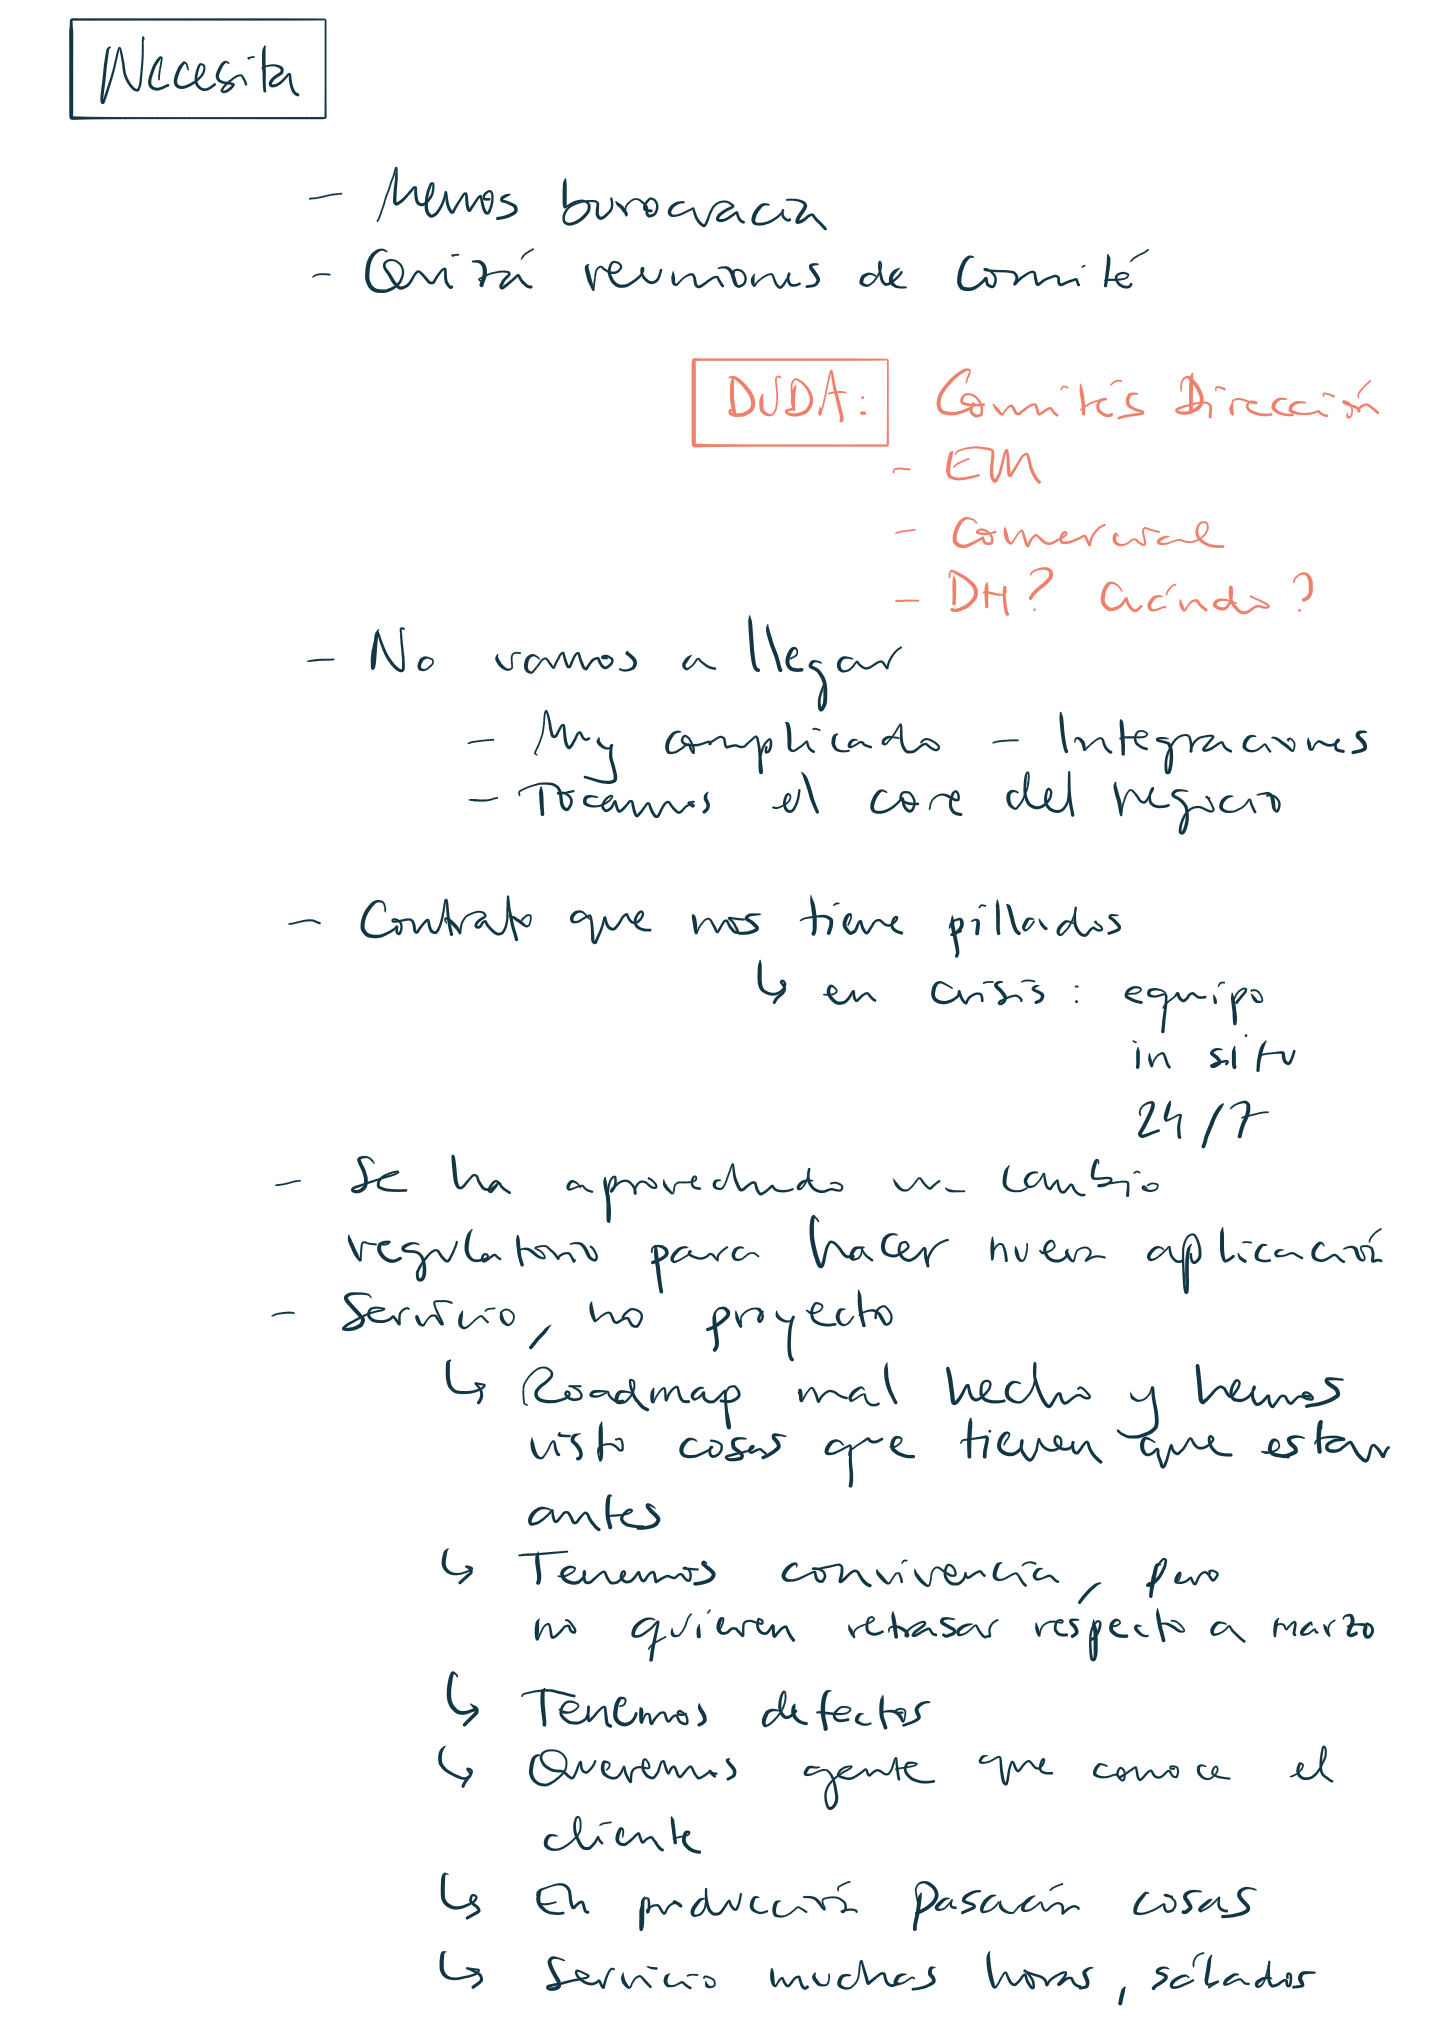 Necesita
- Menos burocracia
- Quizá reuniones de Comité
DUDA: Comités Dirección
- EM
- Comercial
- DH? Cuándo?
- No vamos a llegar
- Muy complicado - Integraciones
- Tocamos el core del negocio
- Contrato que nos tiene pillados
↳ en crisis: equipo
in situ
24/7
- Se ha aprovechado un cambio
regulatorio para hacer nueva aplicación
- Servicio, no proyecto
↳ Roadmap mal hecho y hemos
visto cosas que tienen que estar
antes
↳ Tenemos convivencia, pero
no quieren retrasar respecto a marzo
↳ Tenemos defectos
↳ Queremos gente que conoce el
cliente
↳ En producción pasarán cosas
↳ Servicio muchas horas, sábados